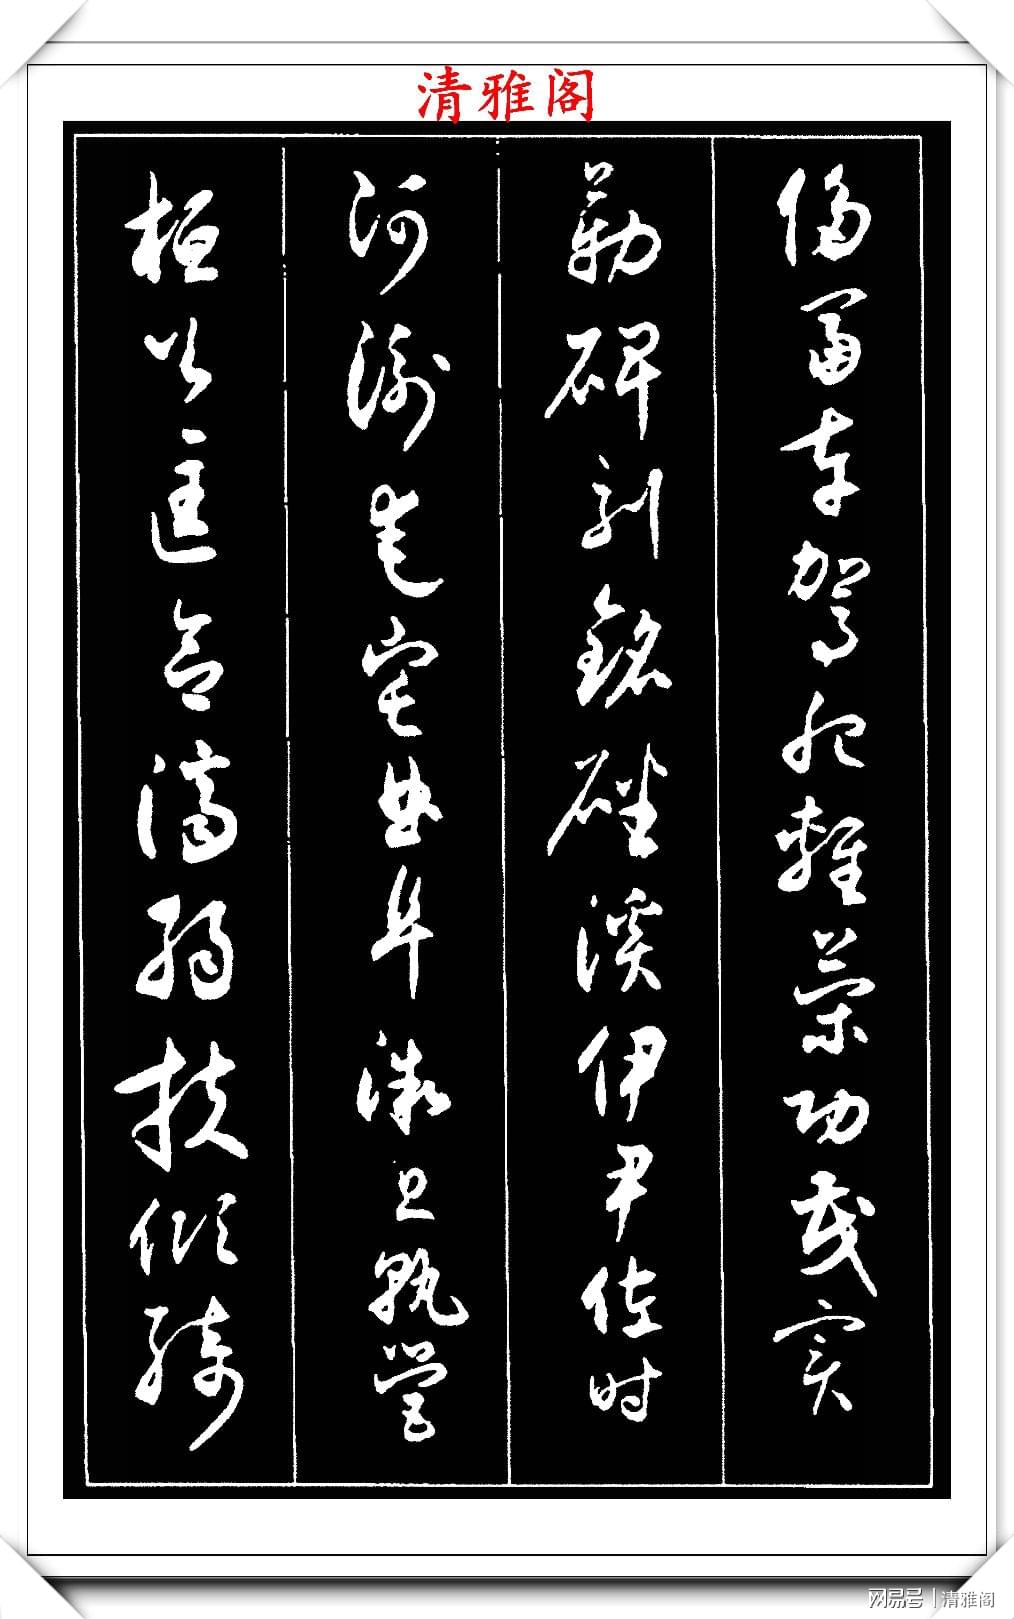 清雅阁
侈富车驾肥轻策功茂实
勒碑刻铭磻溪伊尹佐时
阿衡奄宅曲阜微旦孰营
桓公匡合济弱扶倾绮
网易号 | 清雅阁